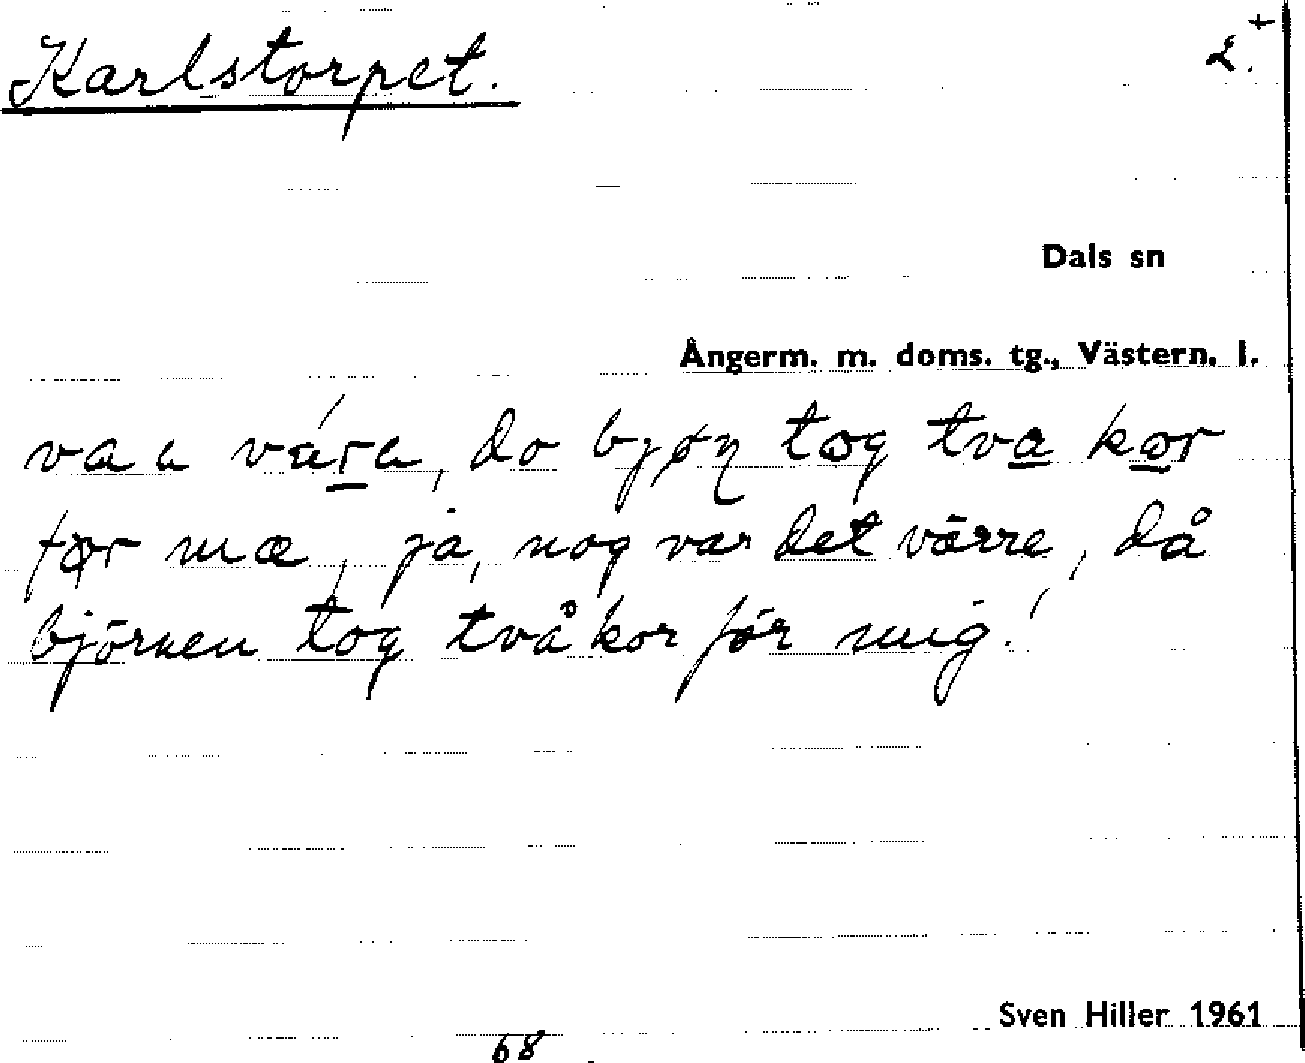 Karlstorpet. 2.+
Dals sn
Ångerm. m. doms. tg., Västern. l.
va a vára, do bjøɳ tog tva kor
før mæ, ja, nog var det värre, då
björnen tog två kor för mig!
Sven Hiller 1961
68